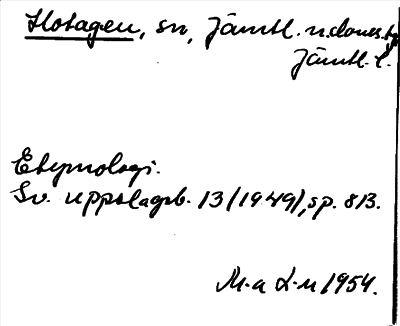 Hotagen, sn, Jämtl. n. doms. tg
Jämtl. l.
Etymologi.
Sv. uppslagsb. 13 (1949), sp. 813.
M-a L-n 1954.